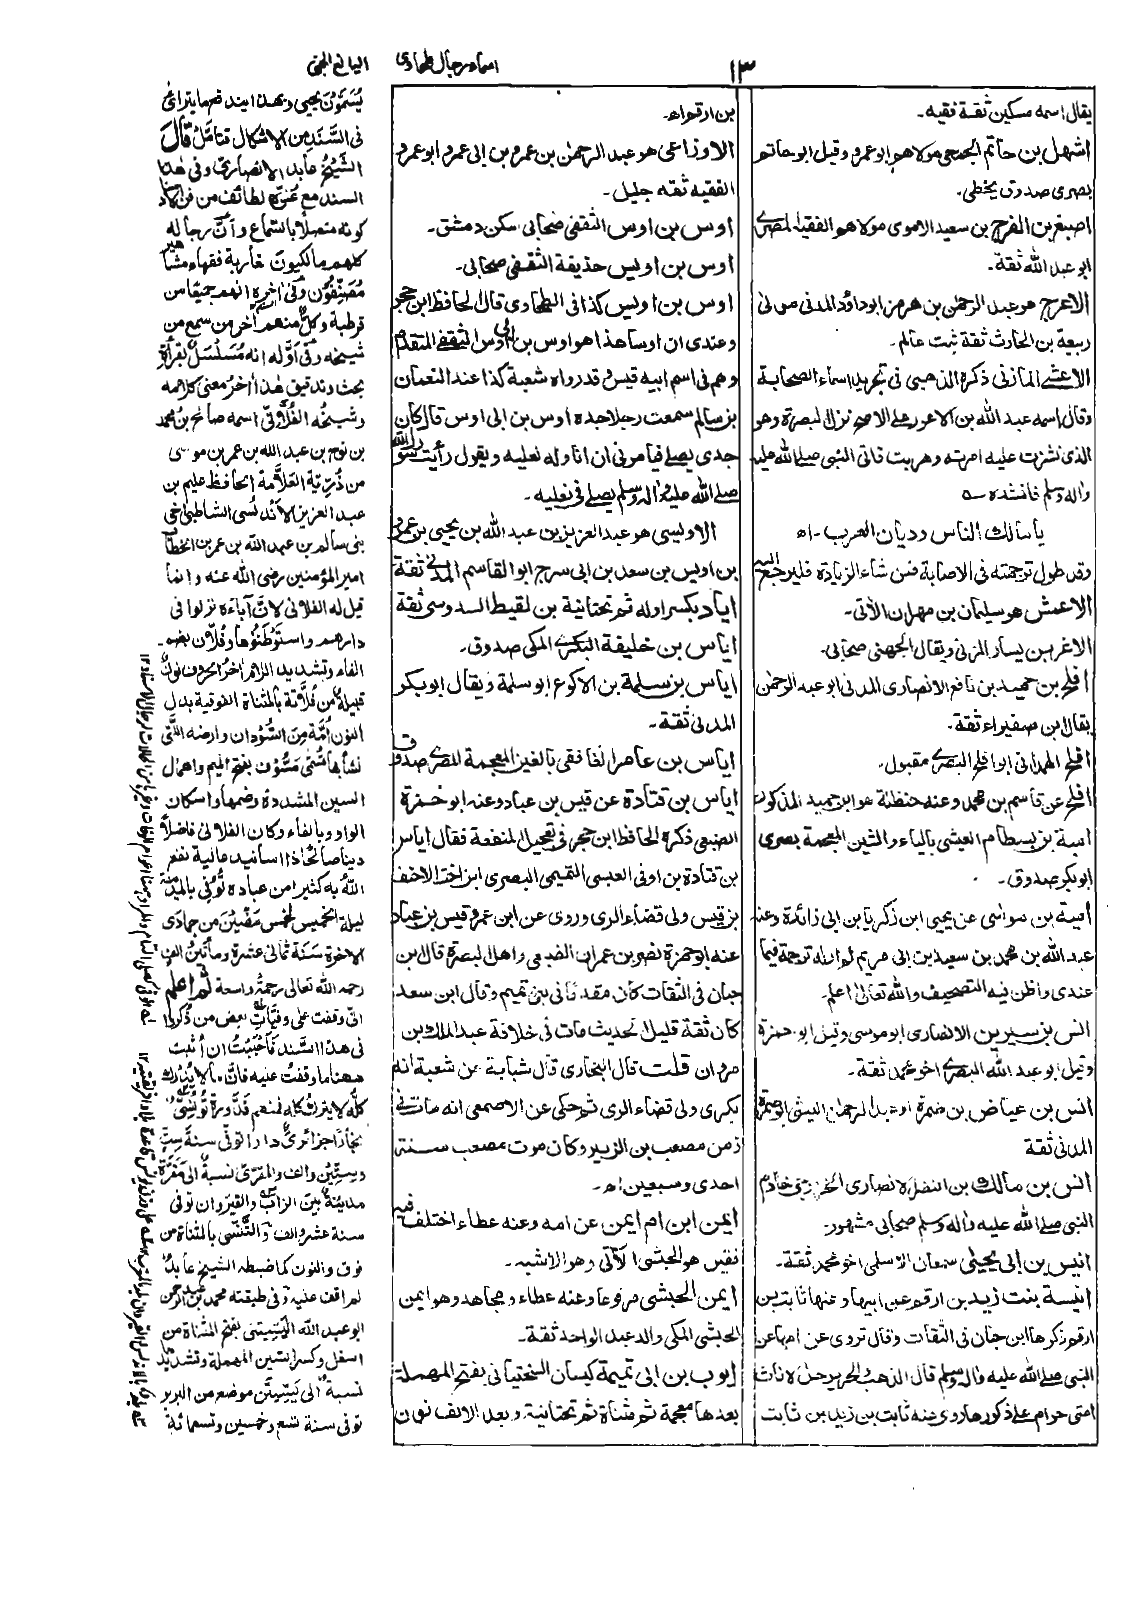 ١٣
اسماء رجال طحاوی
اليانع الجنی
يقال اسمه مسكين ثقة فقيه۔
اشهل بن حاتم الجمحی مولاهم ابو عمرو وقيل ابو حاتم
بصری صدوق يخطی۔
اصبغ بن الفرج بن سعيد الاموی مولاهو الفقيه المصری
ابو عبد الله ثقة۔
الاعرج هو عبد الرحمٰن بن هرمز ابو داؤد المدنی مولی
ربيعة بن الحارث ثقة ثبت عالم۔
الاعشی المازنی ذكره الذهبی فی تجريد اسماء الصحابة
وقال اسمه عبد الله بن الاعور علی الاصح نزل البصرة وهو
الذی نشزت عليه امرته وهربت فاتی النبی صلی الله عليه
واله وسلم فانشده ے
يا مالك الناس وديان العرب۔ اه
وقد طول ترجمته فی الاصابة فمن شاء الزيادة فليرجع اليه
الاعمش هو سليمان بن مهران الآتی۔
الاغر بن يسار المزنی ويقال الجهنی صحابی۔
افلح بن حميد بن نافع الانصاری المدنی ابو عبد الرحمٰن
يقال ابن صفيراء ثقة۔
افلح الهمدانی ابو افلح البصری مقبول۔
افلح عن قاسم بن محمد وعنه حنظلة هو ابن حميد المذكور
امية بن بسطام العيشی بالياء والشين المعجمة بصری
ابو بكر صدوق۔
أمية بن مواسی عن يحيی ابن زكريا بن ابی زائدة وعنه
عبد الله بن محمد بن سعيد بن ابی مريم لم ار له ترجمة فيما
عندی واظن فيه التصحيف والله تعالی اعلم۔
انس بن سيرين الانصاری ابو موسی وقيل ابو حمزة
وقيل ابو عبد الله البصری اخو محمد ثقة۔
انس بن عياض بن ضمرة او عبد الرحمٰن الليثی ابو ضمرة
المدنی ثقة
انس بن مالك بن النضر الانصاری الخزرجی خادم
النبی صلی الله عليه واله وسلم صحابی مشهور۔
انيس بن ابی يحيیٰ سمعان الاسلمی اخو محمد ثقة۔
انيسة بنت زيد بن ارقم عن ابيها وعنها ثابت بن
ارقم ذكرها ابن حبان فی الثقات وقال تروی عن امها عن
النبی صلی الله عليه واله وسلم قال الذهب الحرير حل لاناث
امتی حرام علی ذكورها روی عنه ثابت بن زيد بن ثابت
بن ارقم اه۔
الاوزاعی هو عبد الرحمٰن بن عمرو بن ابی عمرو ابو عمرو
الفقيه ثقه جليل۔
أوس بن اوس الثقفی صحابی سكن دمشق۔
أوس بن اويس حذيفة الثقفی صحابی۔
اوس بن اويس كذا فی الطحاوی قال الحافظ ابن حجر
وعندی ان اوسا هذا هو اوس بن ابی اوس الثقفی المتقدم
وهم فی اسم ابيه قيس وقد رواه شعبة كذا عند النعمان
بن سالم سمعت رجلا جده اوس بن ابی اوس قال كان
جدی يصلی فيامرنی ان اناوله نعليه ويقول رأيت رسول الله
صلی الله عليه واله وسلم يصلی فی نعليه۔
الاويسی هو عبد العزيز بن عبد الله بن يحيی بن عمرو
بن اويس بن سعد بن ابی سرح ابو القاسم المدنی ثقة
اياد بكسر اوله ثم تحتانية بن لقيط السدوسی ثقة
اياس بن خليفة البكری المكی صدوق۔
اياس بن سلمة بن الاكوع ابو سلمة ويقال ابو بكر
المدنی ثقة۔
اياس بن عامر الغافقی بالغين المعجمة المصری صدوق
اياس بن قتادة عن قيس بن عباد وعنه ابو حمزة
الضبعی ذكره الحافظ ابن حجر فی تعجيل المنفعة فقال اياس
بن قتادة بن اوفی العبسی التميمی البصری ابن اخت الاحنف
بن قيس ولی قضاء الری وروی عن ابن عمر وقيس بن عباد
عنه ابو حمزة نصر بن عمران الضبعی واهل البصرة قال ابن
حبان فی الثقات كان مقدما فی بنی تميم وقال ابن سعد
كان ثقة قليل الحديث مات فی خلافة عبد الملك بن
مروان قلت قال البخاری قال شبابة عن شعبة انه
بكری ولی قضاء الری ثم حكی عن الاصمعی انه مات فی
زمن مصعب بن الزبير وكان موت مصعب سنة
احدی وسبعين اه۔
ايمن ابن ام ايمن عن امه وعنه عطاء اختلف فيه
فقيل هو الحبشی الآتی وهو الاشبه۔
ايمن الحبشی مرفوعا وعنه عطاء ومجاهد وهو ايمن
الحبشی المكی والد عبد الواحد ثقة۔
ايوب بن ابی تميمة كيسان السختيانی بفتح المهملة
بعدها معجمة ثم مثناة ثم تحتانية وبعد الالف نون
يسمون يحيی وبهذا يندفع ما يترائی
فی السند من الاشكال فتأمل قال
الشيخ عابد الانصاری وفی هذا
السند مع علوه لطائف من فرائد
كونه متصلا بالسماع وأن رجاله
كلهم مالكيون مغاربة فقهاء مشاهير
مصنفون وفی اخره انهم جميعا من
قرطبة وكل منهم آخر من سمع من
شيخه وفی أوله انه مسلسل بقرأة
بحث وتدقيق هذا اخر معنی كلامه
وشيخه الفلانی اسمه صالح بن محمد
بن نوح بن عبد الله بن عمر بن موسی
من ذرية العلامة الحافظ عليم بن
عبد العزيز الاندلسی الشاطبی اخی
بنی سالم بن عبد الله بن عمر بن الخطاب
امير المؤمنين رضی الله عنه وانما
قيل له الفلانی لان آباءه نزلوا فی
دارهم واستوطنوها وفلان بضم
الفاء وتشديد اللام اخر الحروف نون
قبيلة من فلاتة بالمثناة الفوقية بدل
النون أمة من السودان وارضه التی
نشأ بها تسمی مسوف بفتح الميم واهمال
السين المشددة وضمها واسكان
الواو وبالفاء وكان الفلانی فاضلا
دينا صالحا ذا اسانيد عالية نفع
الله به كثيرا من عباده توفی بالمدينة
ليلة الخميس لخمس مضين من جمادی
الاخرة سنة ثمانی عشرة ومأتين الف
رحمه الله تعالی رحمة واسعة ثم اعلم
انی وقفت علی وفيات بعض من ذكروا
فی هذا السند فأحببت ان أثبت
ههنا ما وقفت عليه فان ما لا يدرك
كله لا يترك كله فمنهم قدورة تونسی
نجارا جزائری دارا توفی سنة ست
وستين والف والمقری نسبة الی مقرة
مدينة بين الزاب والقيروان توفی
سنة عشر والف والتنسی بالمثناة من
فوق والنون كما ضبطه الشيخ عابد
لم اقف عليه وفی طبقته محمد بن عبد الرحمن
ابو عبد الله اليسيتنی بفتح المثناة من
اسفل وكسر السين المهملة وتشديد
نسبة الی يسيتن موضع من البربر
توفی سنة تسع وخمسين وتسعمائة